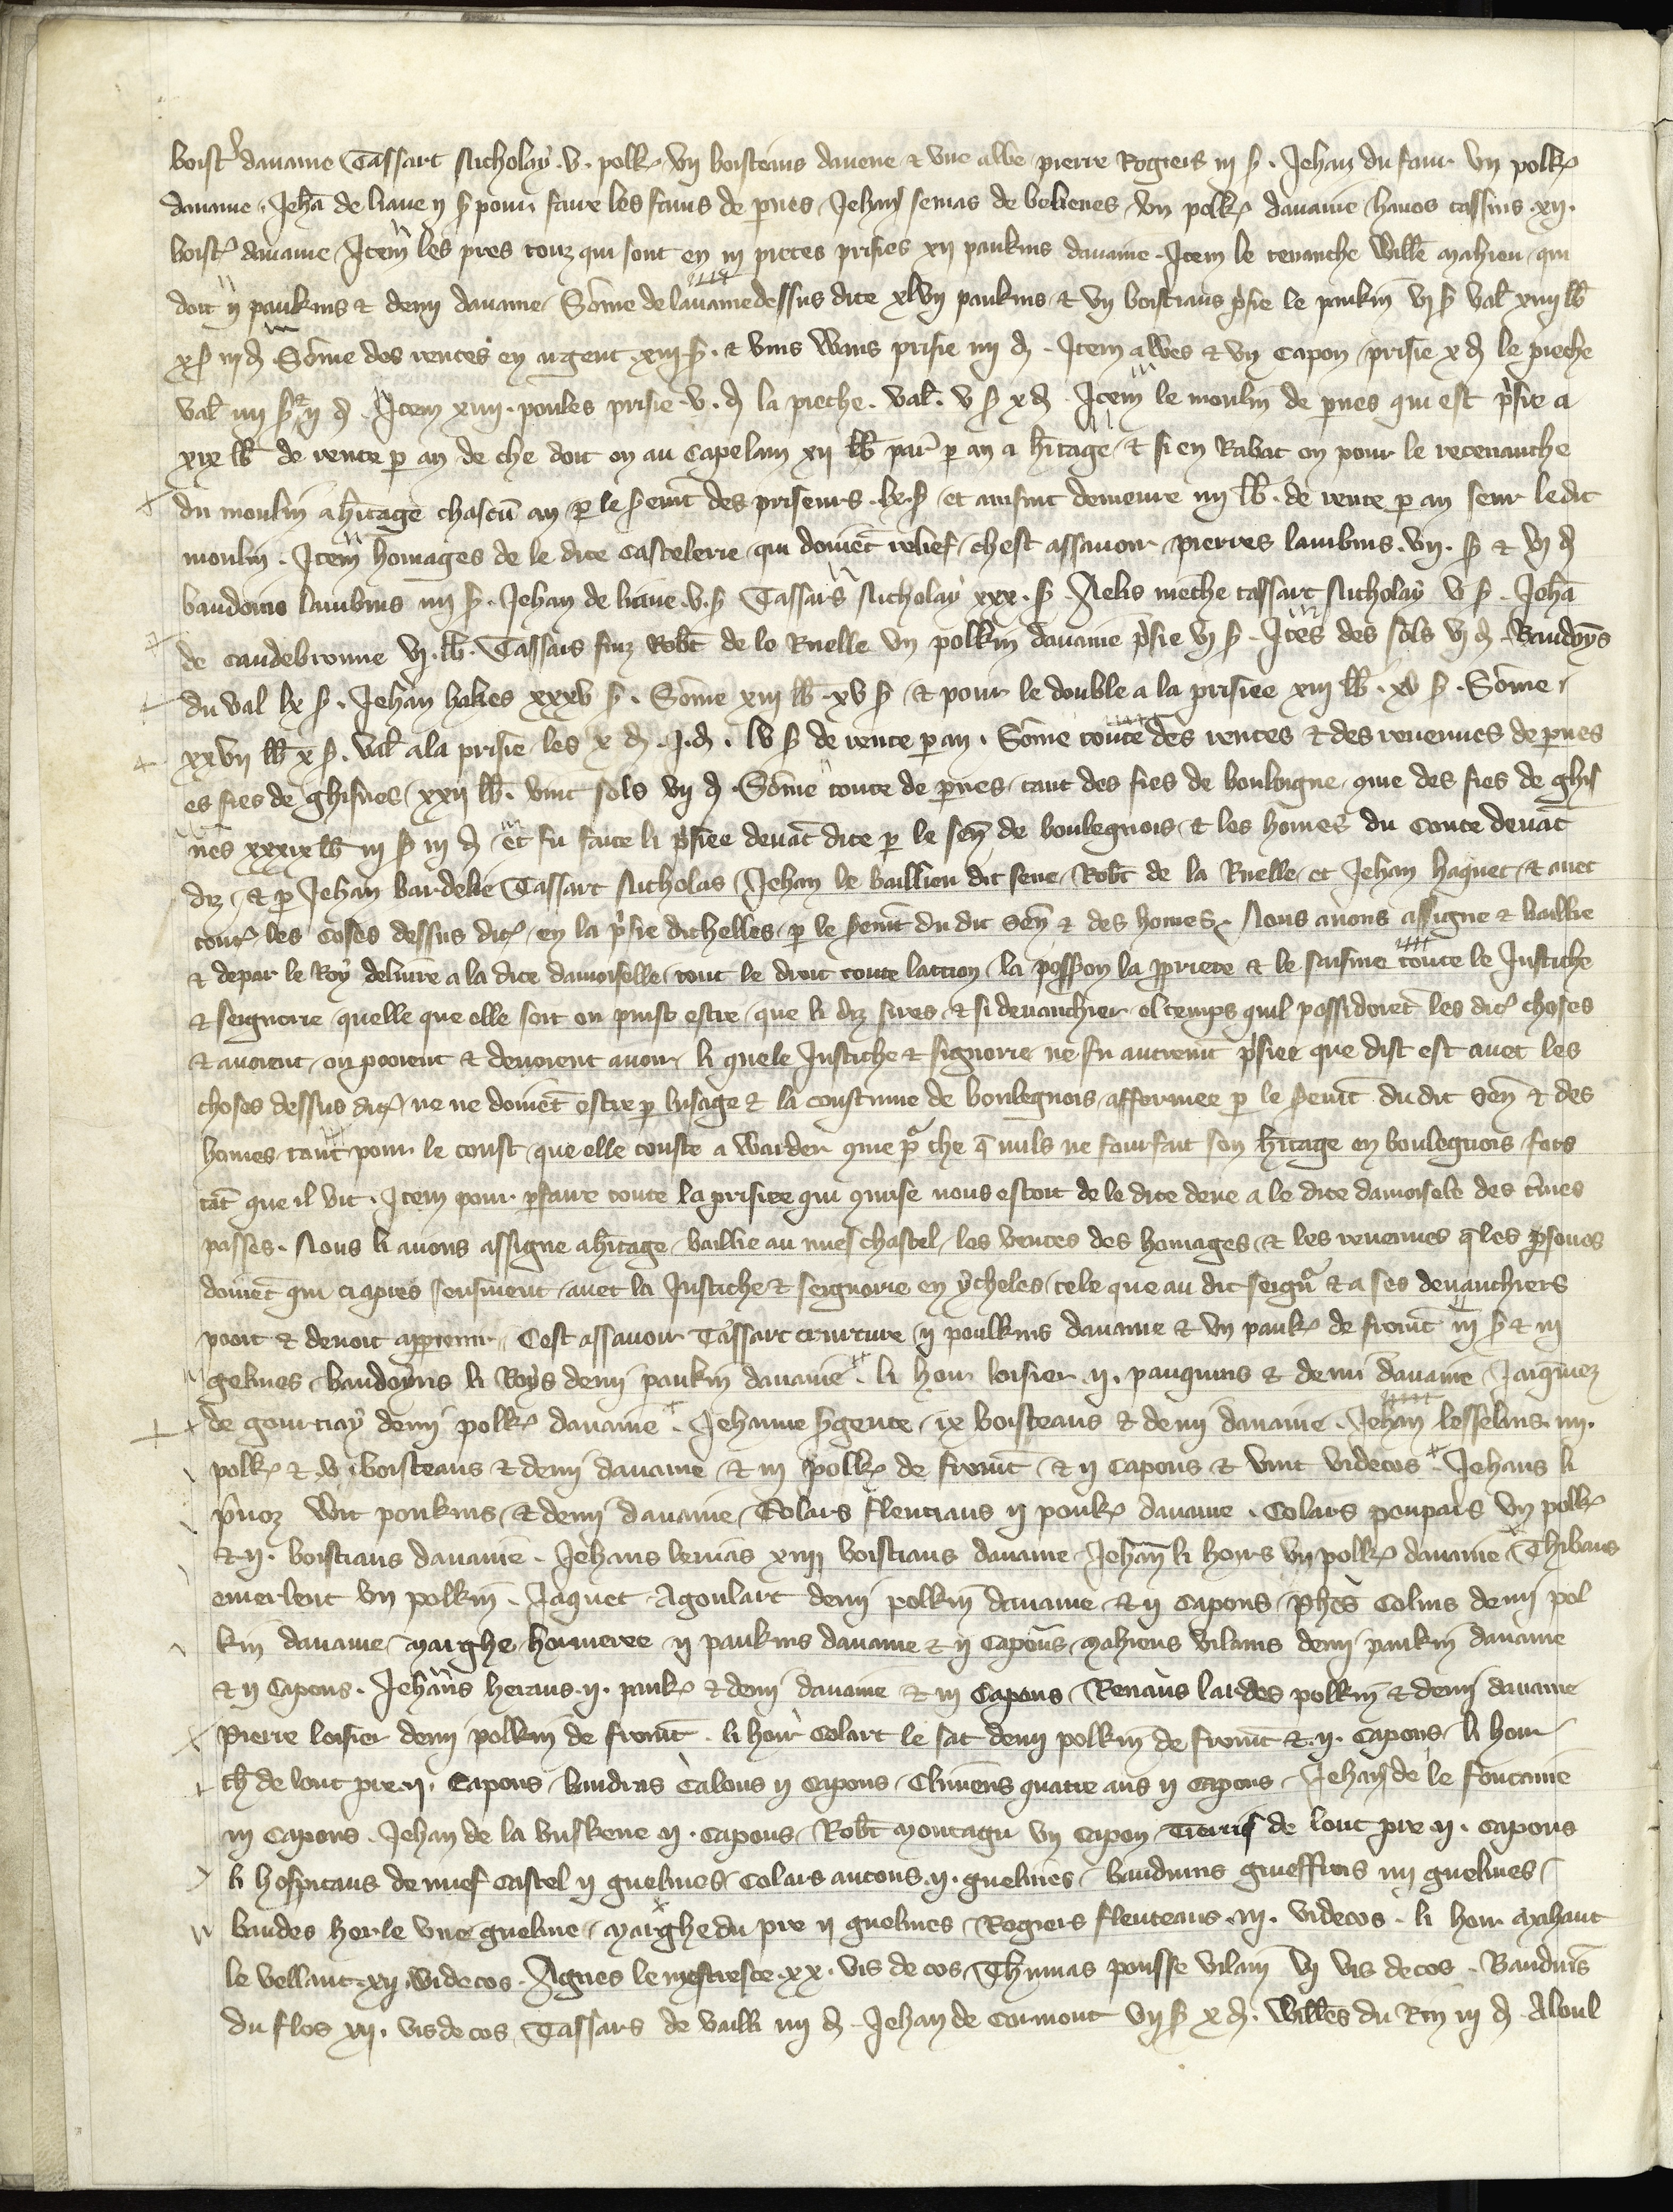 boist᷒ davaine Tassart Nicholay .v. polk᷒ vn boisteaus davene et vne albe pierre Rogiers iii s. Jehan du four vn polk᷒
davaine. Jehā de liane ii s pour faire les fains de pnes Jehan senias de belienes vn polk᷒ davaine hanos cassins .xii.
boist᷒ davaine Item les pres touz qui sont en iii pieces prisies xii paukins davaine. Item le tenanche Will̄e Mahieu qui
doit ii paukins et demi davaine Som̄e de lavaine dessus dite xlvii paukins et vn boistiaus p̄sie le paukin vi s val̄ xiiii lb̄
x s iii d Som̄e des rentes en argent xiii s. et vins wans prisie iiii d. Item albes et vn capon prisie x d le pieche
val̄ iiii s ii d. Item xiiii. poules prisie .v. d la pieche. val̄. v s x d. Item le moulin de pnes qui est p̄sie a
xix lb̄ de rente p an de che doit on au capelain xii lb̄ par̄ p an a hītage et si en Rabat on pour le retenanche
du moulin a hītage chascū an p le serm̄t des priseurs .lx. s et ainsint demeure iiii lb̄. de rente p an seur ledit
moulin. Item homages de le dite castelerie qui doivēt relief chest assavoir pierres lambins .vii. s et vi d
baudoins lambins iiii s. Jehan de liane .v. s Tassars Nicholay xxx. s Aelis nieche tassart Nicholay v s. Jehā
de caudebronne vi. lb̄. Tassars fiuz Rob̄t de le Ruelle vn polkin davaine p̄sie vi s. Ites des sols vi d. Baudoȳs
du val lx s. Jehan hakes xxxv s. Som̄e xiii lb̄. xv s et pour le double a la prisiee xiii lb̄. xv s. Som̄e
xxvii lb̄ x s. val̄ a la prisie les x d. i. d. lv s de rente p an. Som̄e toute des rentes et des revenues de pnes
es fies de ghisnes xxii lb̄. vint sols vii d. Som̄e toute de pnes tant des fies de bouloigne que des fies de ghis
nes xxxix lb̄ iii s iii d et fu faite li p̄siee devāt dite p le sen̄ de boulegnois et les homes du conte devāt
diz et p Jehan bardelie Tassart Nicholas Jehan le baillieu dit seue Rob̄t de la Ruelle et Jehan haquet et avec
tout᷒ les coses dessus dit᷒ en la p̄sie dichelles p le serm̄t du dit sen̄ et des homes. Nous avons assigne et baillie
et depar le Roy delivre a la dite damoiselle tout le droit toute laction la possion la pprete et le saisine toute le Justiche
et seignorie quelle que elle soit ou puist estre que li diz sires et si devanchier el temps quil possidoiēt les dit᷒ choses
et avoient ou pooient et devoient avoir li quele Justiche et signorie ne fu autrem̄t p̄siee que dist est avec les
choses dessus dit᷒ ne ne doivēt estre p lusage et la coustume de boulegnois affermee p le serm̄t du dit sen̄ et des
homes tant pour le coust que elle couste a warder que pr che q̄ nuls ne fourfait son hītage en boulegnois fors
tāt que il vit. Item pour pfaire toute la prisiee qui quise nous estoit de le dite dene a le dite damoisele des t̄mes
passes. Nous li avons assigne a hītage baillie au nuef chastel les ventes des homages et les revenues q̄ les psones
doivēt qui ci apres sensuient avec la Justiche et seignorie en ycheles tele que au dit seign̄ et a ses devanchiers
pooit et devoit apptenir. Cest assavoir Tassart criarture ii poulkins davaine et vn pauk᷒ de from̄t iii s et iii
gelines baudoyns li Roys demi paukin davaine. li hoir loisier .ii. pauquins et demi davaine Jaiquez
de gournay demi polk᷒ davaine. Jehanne Sgente ix boisteaus et demi davaine. Jehan lesselins. iiii.
polk᷒ et .v. boisteaus et demi davaine et iii polk᷒ de from̄t et ii capons et vint videcos. Jehans li
p̄voz wit poukins et demi davaine Colars flentiaus ii pouk᷒ davaine. Colars poupars vn polk᷒
et ii. boistiaus davaine. Jehans bernas xiiii boistiaus davaine Jehan li hoirs vn polk᷒ davaine Thibaus
emerlent vn polkin. Jaquet Agoulart demi polkin davaine et ii capons Phēs Colins demi pol
kin davaine Marghe hoimeree ii paukins davaine et ii capons Mahieus vilains demi paukin davaine
et ii capons. Jehans heraus .ii. pauk᷒ et demi davaine et iii capons Renaus lardes polkin et demi davaine
Pierre loisier demi polkin de from̄t. li hoir Colart le sat demi polkin de from̄t et .ii. capons li hoir
ch̄ de lont pre .ii. capons baudras Calous ii capons Climens quatre ans ii capons Jehan de le fontaine
iii capons. Jehan de la buskene ii. capons Rob̄t Montagu vn capon Tierris de lont pre .ii. capons
li hospitaus de nuef castel ii guelines Colars ancons .ii. guelines bauduins guieffrois iiii guelines
baudes herle vne gueline Marghe du pre ii guelines Rogiers flenteaus .iii. videcos. li hoir Mahaut
le vellaine xii. videcos. Agnes le mestresce. xx. vis de cos Thumas pousse vilain vi vis decos. Bauduīs
du flos xii. vis de cos Tassars de vailli iiii d. Jehan de cormont vii s x d. Will̄es du Rin iii d. Aloul